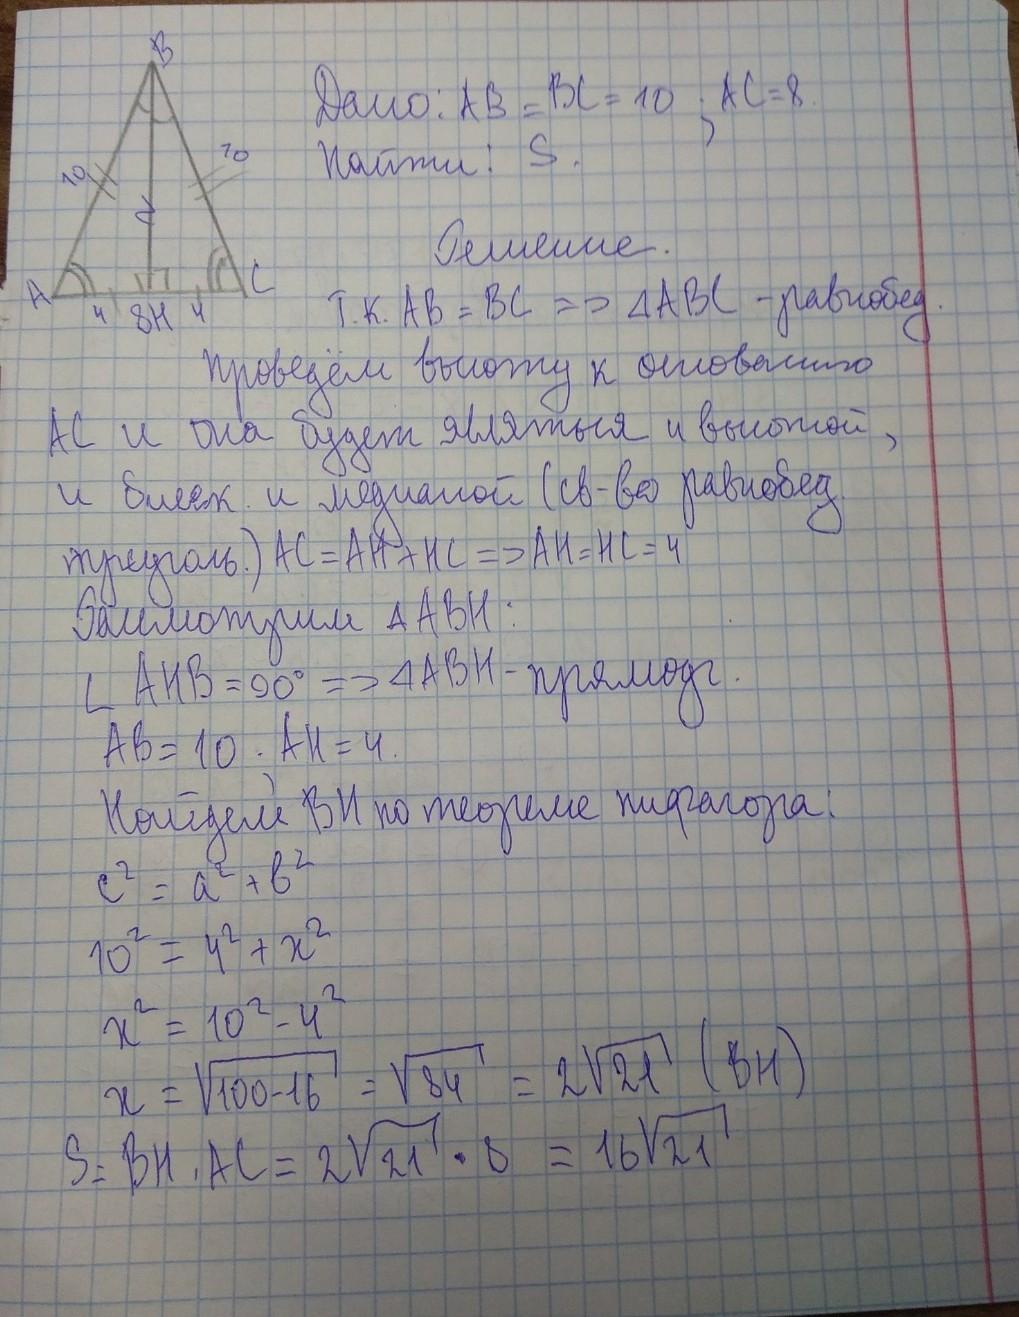 B
10
10
A
C
4 8H 4
Дано: AB = BC = 10 ; AC = 8.
Найти: S.
Решение.
Т.к. AB = BC => ΔABC - равнобед.
Проведём высоту к основанию
AC и она будет являться и высотой,
и бисек. и медианой (св-во равнобед.
треуголь.) AC = AH + HC => AH = HC = 4
Рассмотрим ΔABH:
∟ AHB = 90° => ΔABH - прямоуг.
AB = 10 ; AH = 4.
Найдем BH по теореме пифагора:
c² = a² + b²
10² = 4² + x²
x² = 10² - 4²
x = √100-16 = √84 = 2√21 (BH)
S = BH · AC = 2√21 · 8 = 16√21